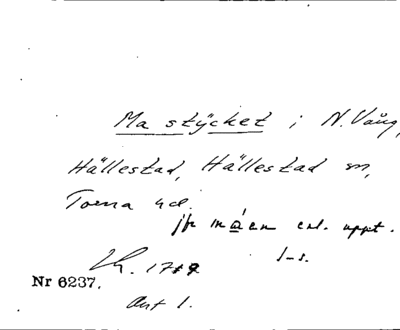 Ma stÿcket i N. Vång,
Hällestad, Hällestad sn,
Torna hd.
jfr måen enl. uppt.
I-s.
Lh. 1719
Nr 6237.
Akt 1.